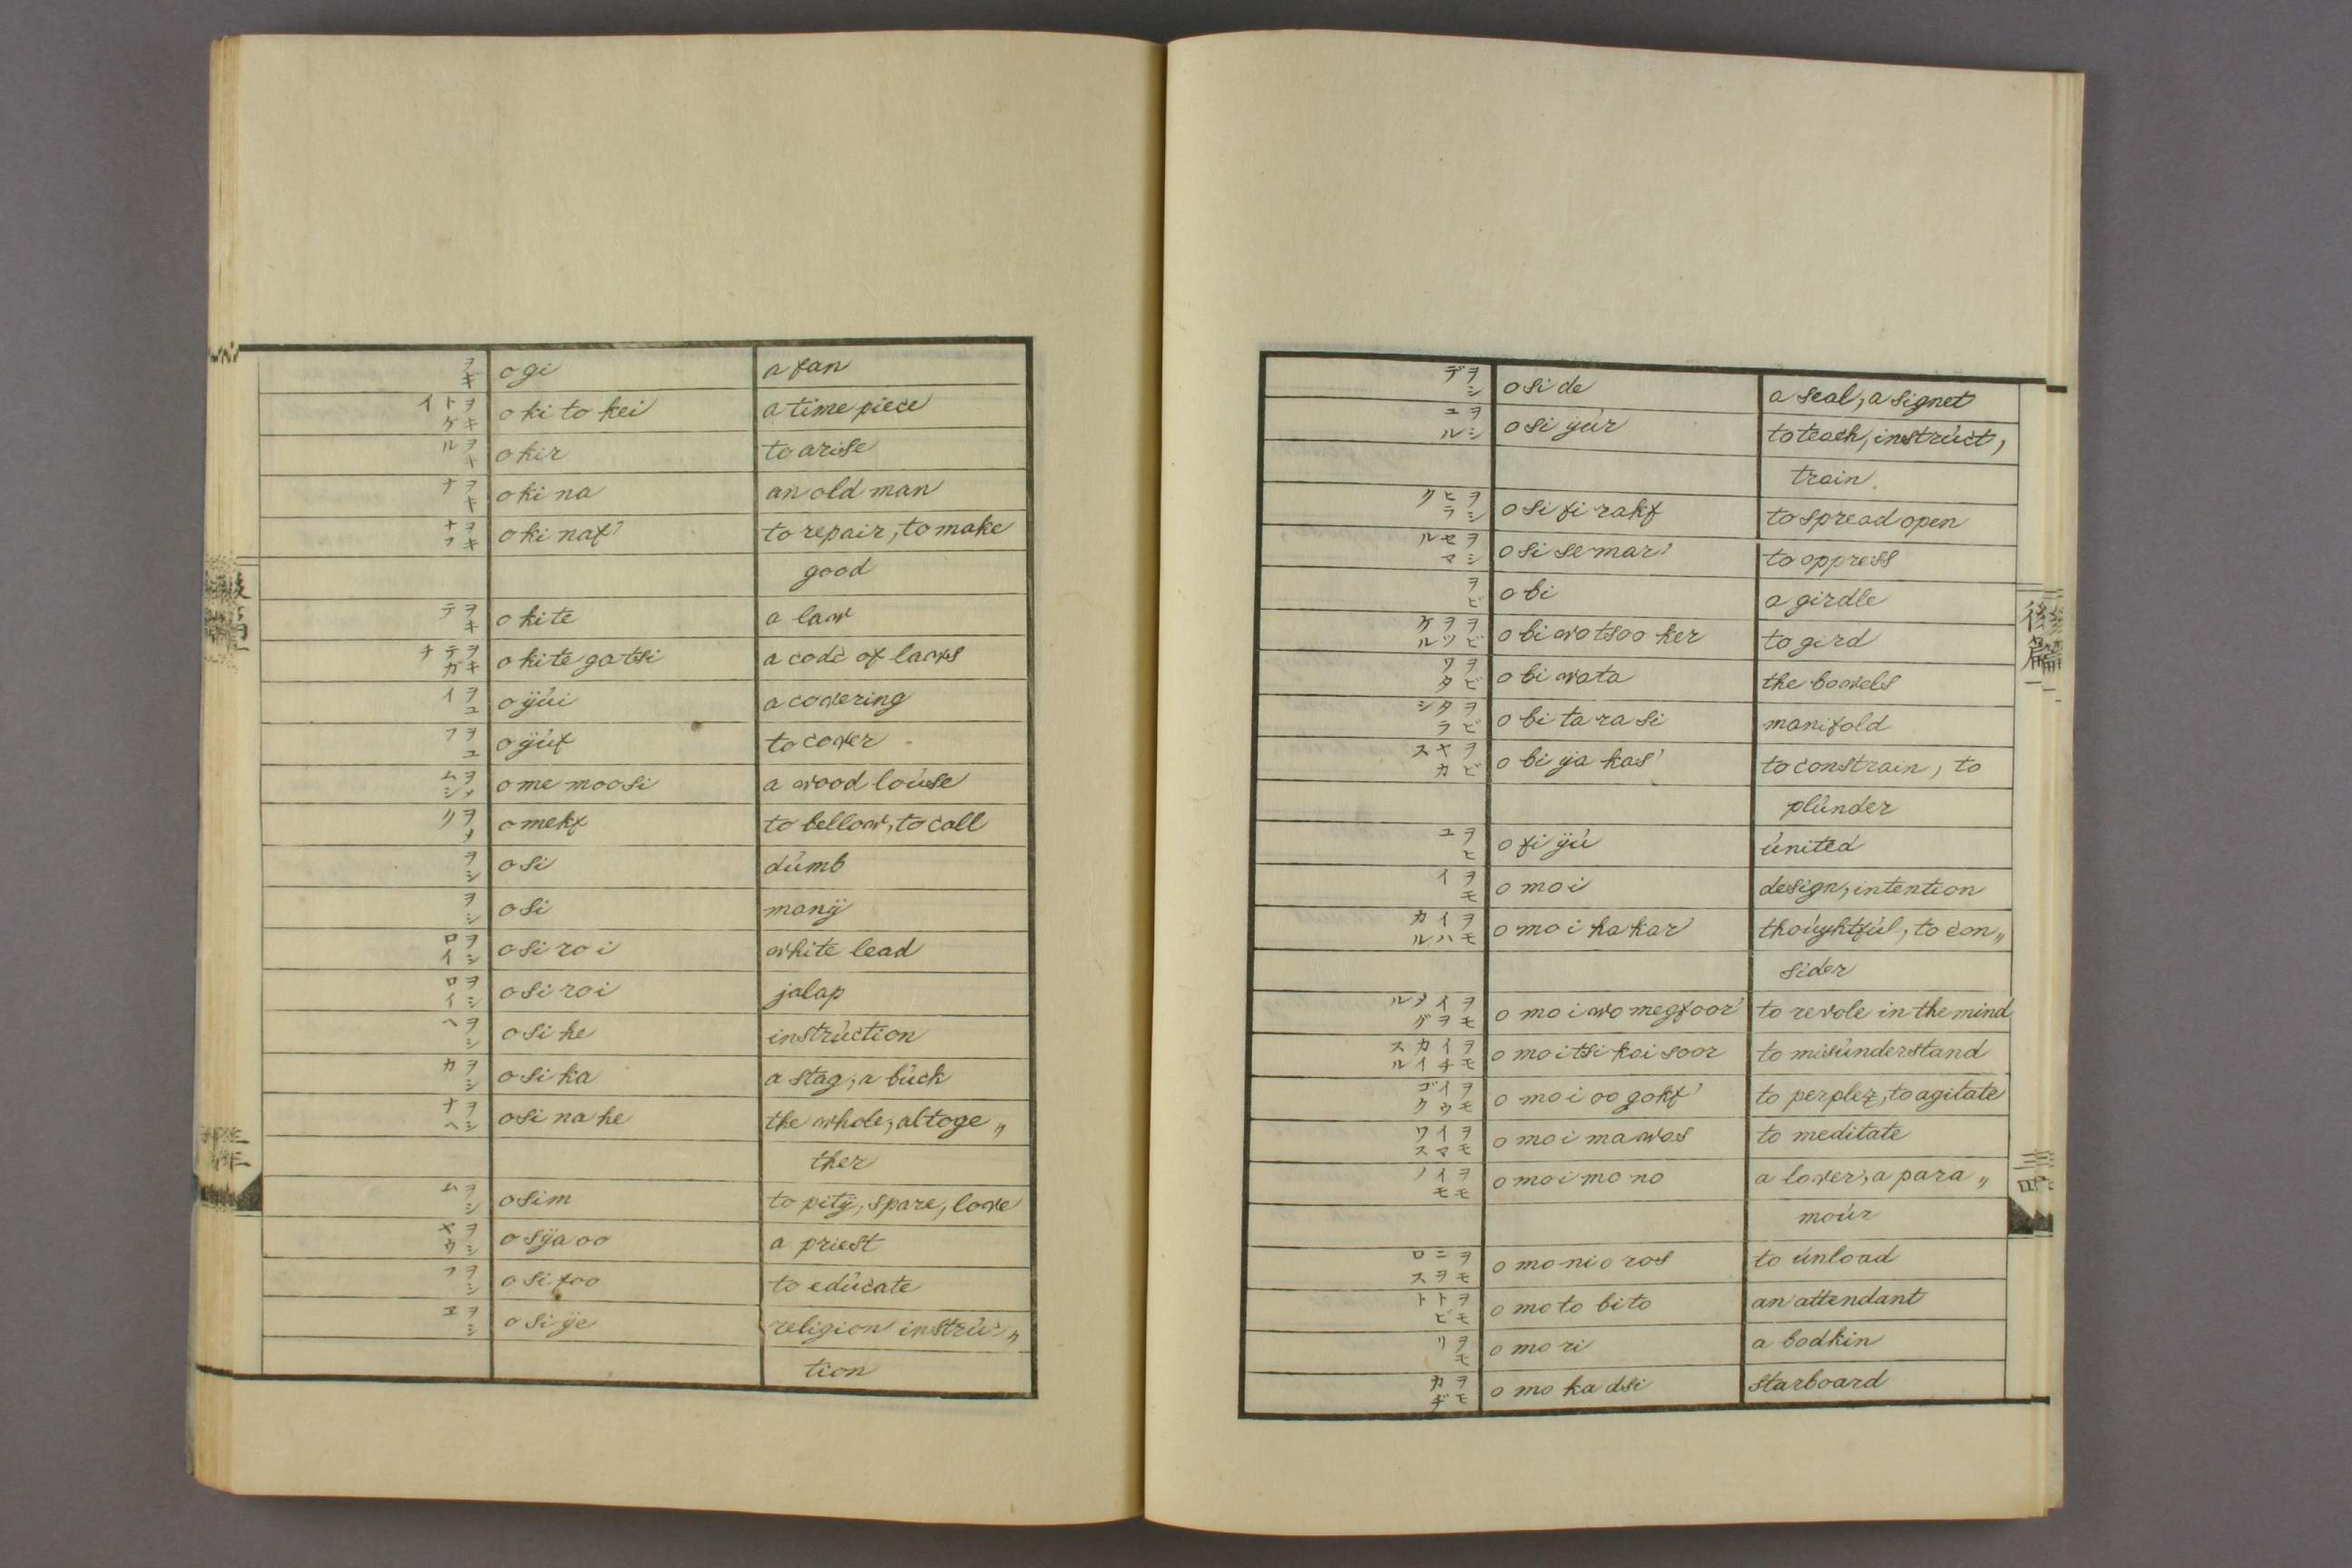 ヲギ ogi a fan
ヲキトケイ okitokei a time piece
ヲキル okir to arise
ヲキナ okina an old man
ヲキナフ okinaf' to repair, to make
good
ヲキテ okite a law
ヲキテガチ okitegatsi a code of laws
ヲユイ oÿúi a covering
ヲユフ oÿúf to cover
ヲメムシ omemoosi a wood loúse
ヲメク omekf to bellow, to call
ヲシ osi dúmb
ヲシ osi manÿ
ヲシロイ osiroi white lead
ヲシロイ osiroi jalap
ヲシヘ osihe instrúction
ヲシカ osika a stag, a búck
ヲシナヘ osinahe the whole, altoge„
ther
ヲシム osim to pitÿ, spare, love
ヲシヤウ osÿaoo a priest
ヲシフ osifoo to edúcate
ヲシヱ osiÿe religion instrúc„
tion
ヲシデ oside a seal, a signet
ヲシユル osiÿúr to teach, instrúct,
train.
ヲシヒラク osifirakf to spread open
ヲシセマル osisemar' to oppress
ヲビ obi a girdle
ヲビヲツケル obiwotsooker to gird
ヲビワタ obiwata the bowels
ヲビタラシ obitarasi manifold
ヲビヤカス obiÿakas' to constrain, to
plúnder
ヲヒユ ofiÿú únited
ヲモイ omoi design, intention
ヲモイハカル omoihakar' thoúghtfúl, to con„
sider
ヲモイヲメグル omoiwomegfoor' to revole in the mind
ヲモイチカイスル omoitsikaisoor to misúnderstand
ヲモイウゴク omoioogokf' to perplex, to agitate
ヲモイマワス omoimawas to meditate
ヲモイモノ omoimono a lover, a para„
moúr
ヲモニヲロス omonioros to únload
ヲモトビト omotobito an attendant
ヲモリ omori a bodkin
ヲモカヂ omokadsi starboard
後篇一